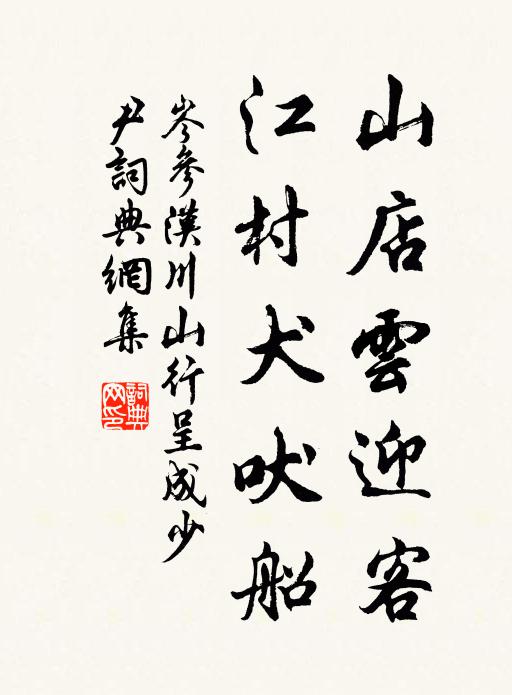 山店雲迎客
江村犬吠船
岑參漢川山行呈成少
尹詞典網集
詞典
网印